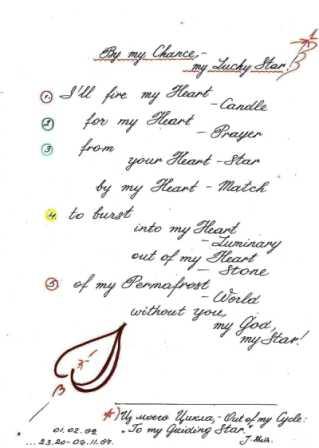 By my Chance,-
my Lucky Star
1. I'll fire my Heart
- Candle
2 for my Heart
- Prayer
3 from
your Heart - Star
by my Heart - Match
4. to burst
into my Heart
- Luminary
out of my Heart
- Stone
5 of my Permafrost
- World
without you,
my God,
my Star!
*) Из моего Цикла, - Out of my Cycle:
"To my Guiding Star."
01.02.02
...23.20-04.11.04.